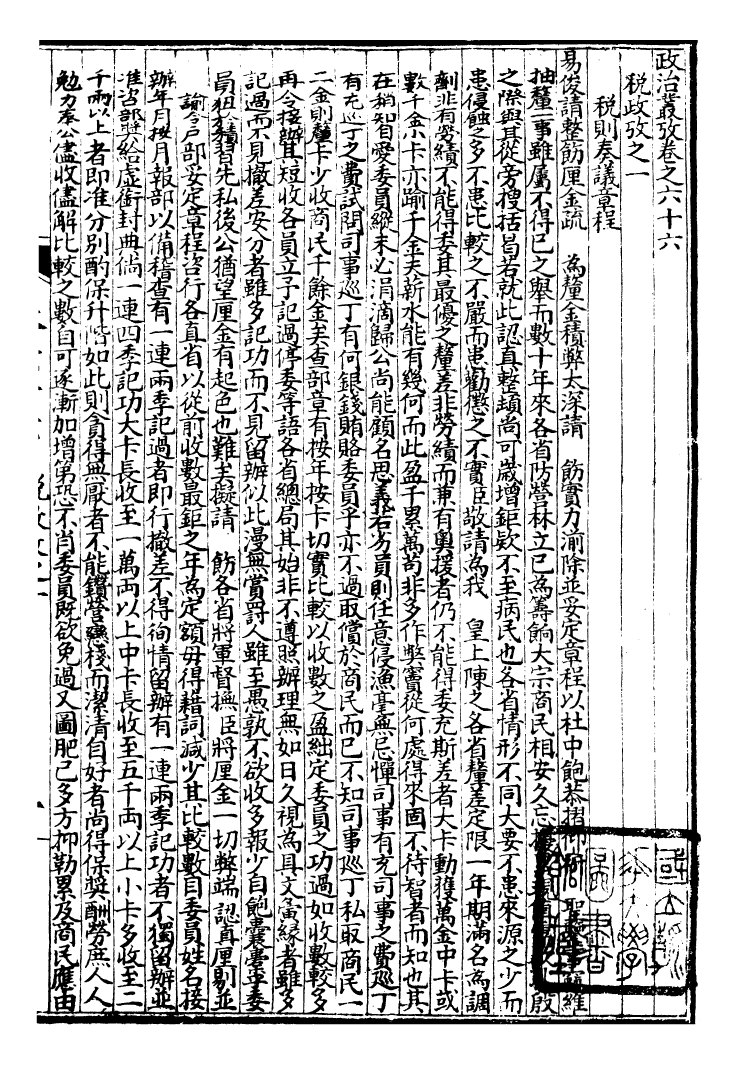 政治叢攷卷之六十六
税政攷之一
税則奏議章程
易俊請整筯厘金疏 為釐金積弊太深請 飭實力湔除並妥定章程以杜中飽恭摺仰祈 聖 維
抽釐一事雖屬不得已之舉而數十年來各省防營林立已為籌餉大宗商民相安久忘 啟
之際與其從旁搜括曷若就此認真整頓尚可歲增鉅欵不至病民也各省情形不同大要不患來源之少而
患侵蝕之多不患比較之不嚴而患勸懲之不實臣敬請為我 皇上陳之各省釐差定限一年期滿名為調
劑非有勞績不能得委其最優之釐差非勞績而兼有奧援者仍不能得委充斯差者大卡動獲萬金中卡或
數千金小卡亦踰千金夫薪水能有幾何而此盈千累萬苟非多作弊竇從何處得來固不待智者而知也其
在稍知自愛委員縱未必涓滴歸公尚能顧名思義若劣員則任意侵漁毫無忌憚司事有充司事之費廵丁
有充巡丁之費試問司事巡丁有何銀錢賄賂委員乎亦不過取償於商民而已不知司事廵丁私取商民一
二金則釐卡少收商民千餘金矣查部章有按年按卡切實比較以收數之盈絀定委員之功過如收數較多
再令接辦其短收各員立予記過停委等語各省總局其始非不遵照辦理無如日久視為具文夤緣者雖多
記過而不見撤差安分者雖多記功而不見留辦似此漫無賞罰人雖至愚孰不欲收多報少自飽囊橐乎委
員狃於積習先私後公猶望厘金有起色也難矣擬請 飭各省將軍督撫臣將厘金一切弊端認真厘剔並
諭令戶部妥定章程咨行各直省以從前收數最鉅之年為定額毋得藉詞減少其比較數目委員姓名接
辦年月按月報部以備稽查有一連兩季記過者即行撤差不得徇情留辦有一連兩季記功者不獨留辦並
准咨部將給虛銜封典倘一連四季記功大卡長收至一萬両以上中卡長收至五千両以上小卡多收至二
千両以上者即准分別酌保升階如此則貪得無厭者不能鑽營戀棧而潔清自好者尚得保獎酬勞庶人人
勉力奉公儘收儘解比較之數自可逐漸加增第恐不肖委員既欲免過又圖肥己多方抑勒累及商民應由